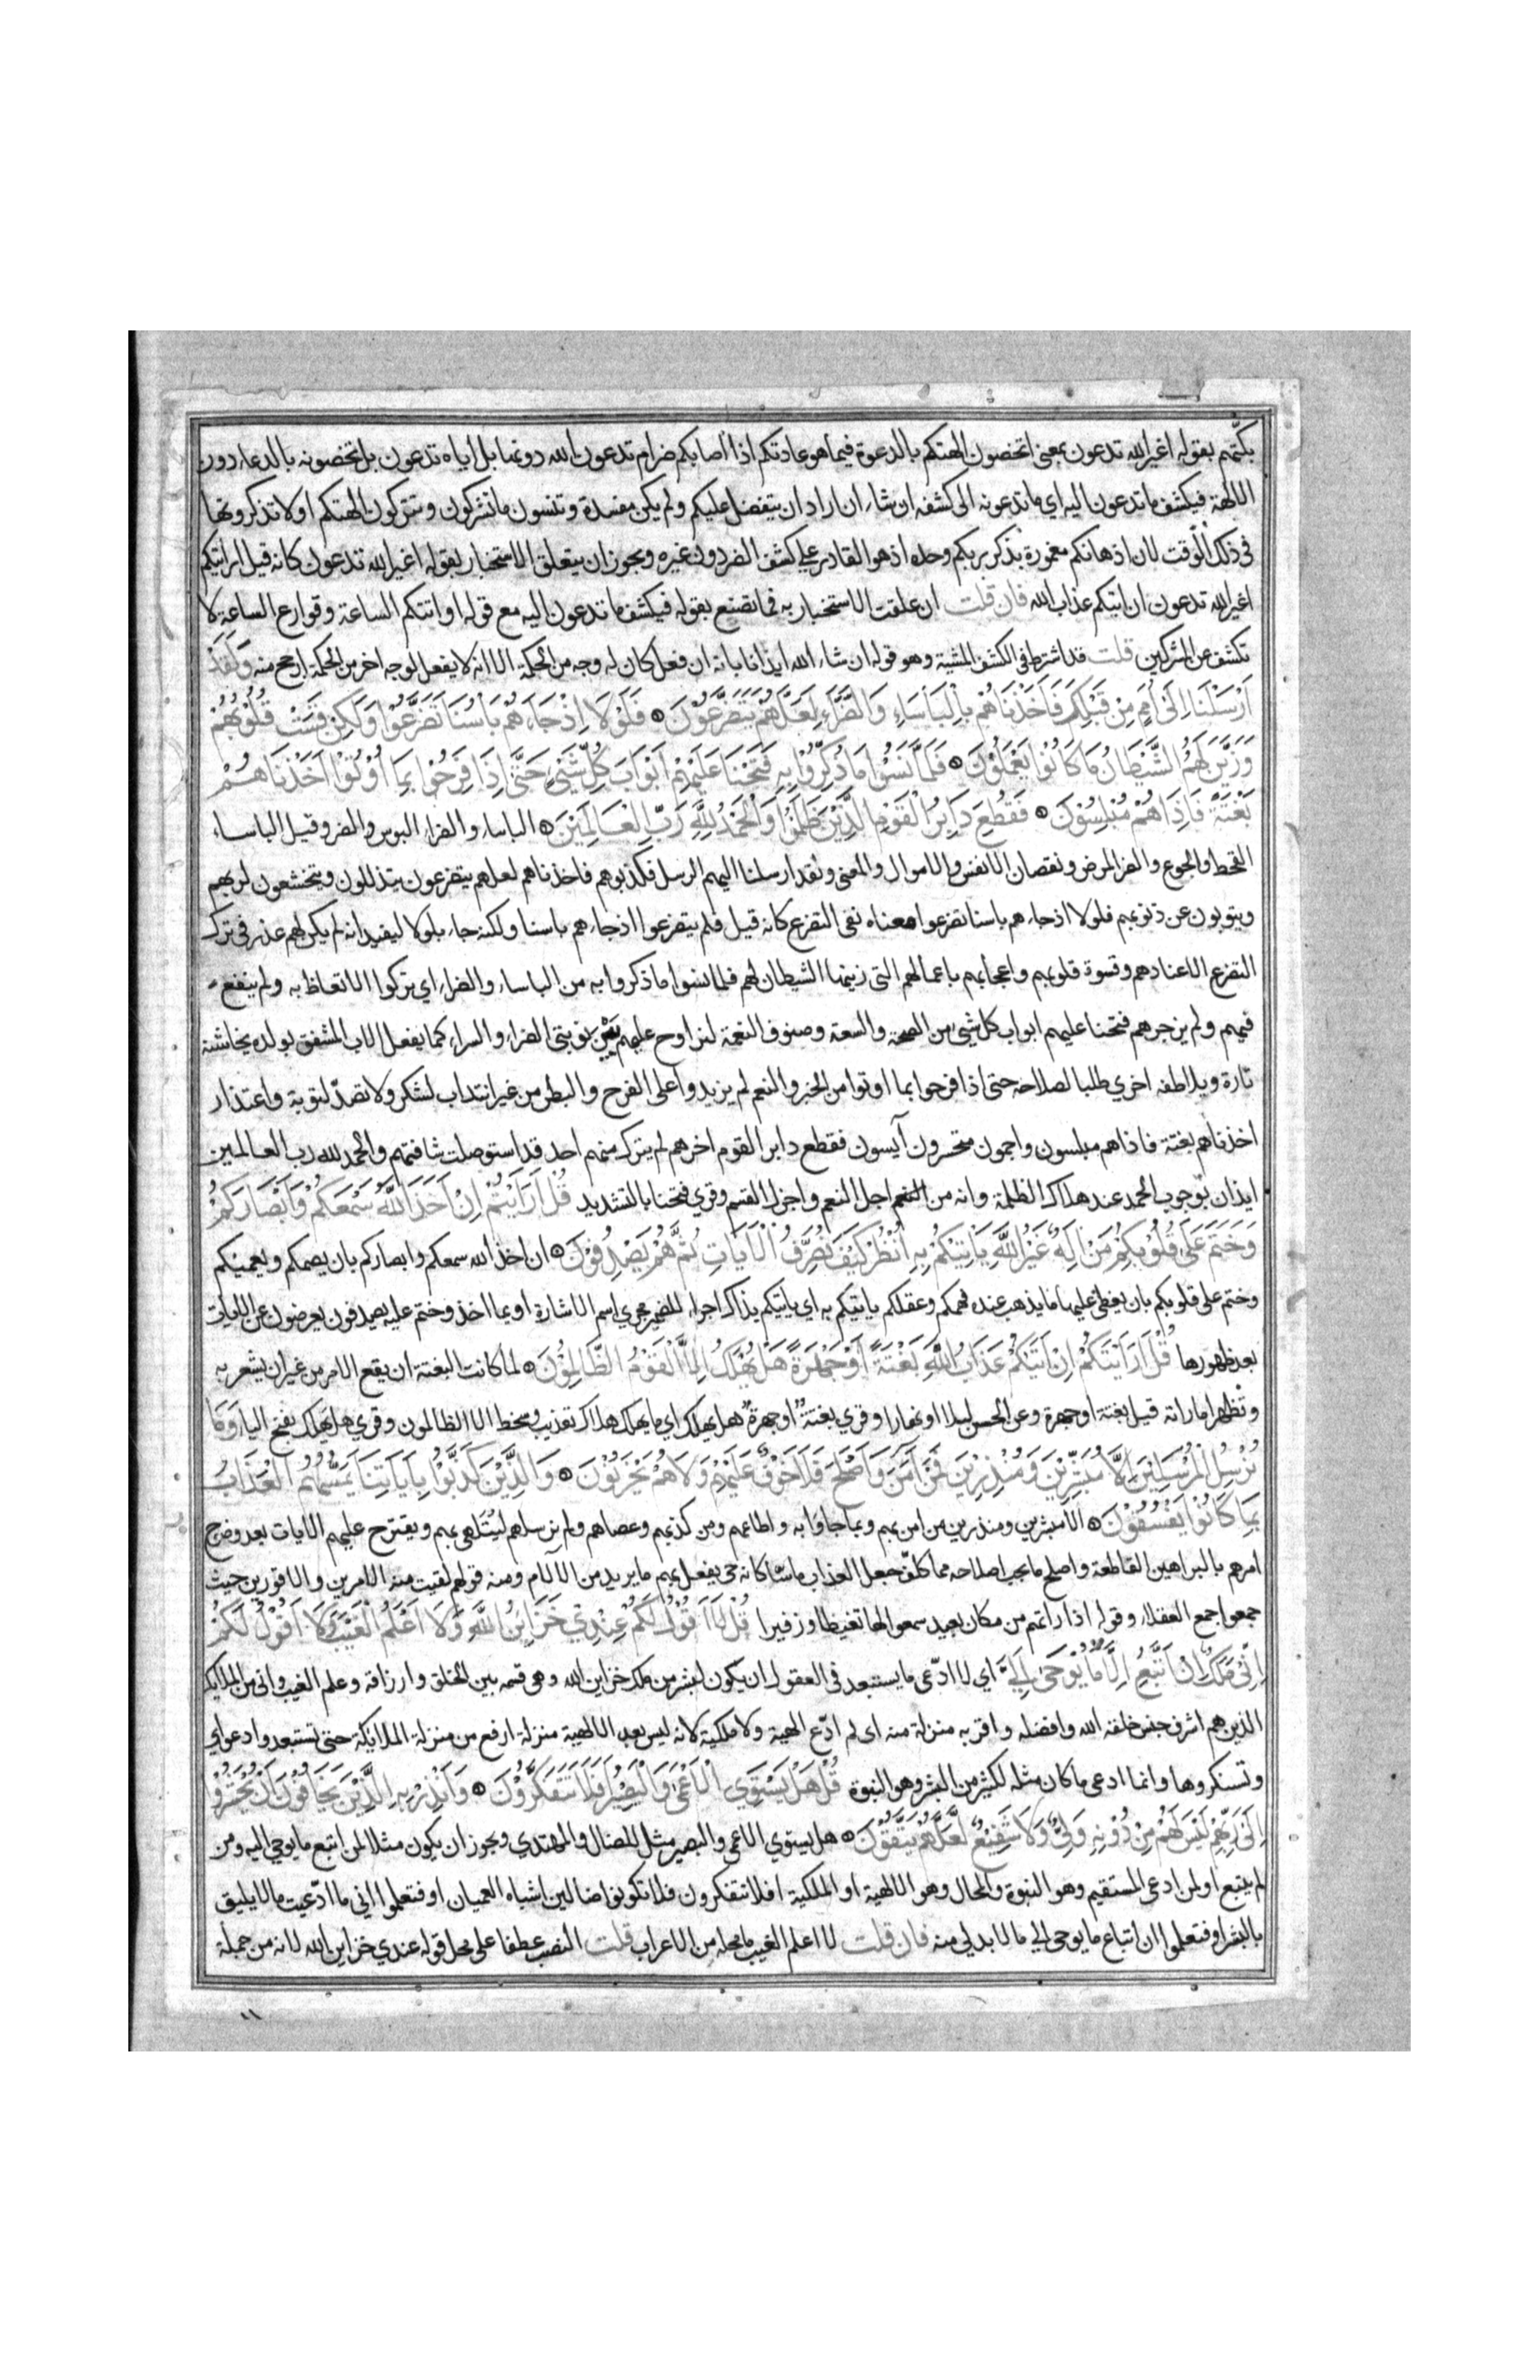 بكتهم بقوله اغير الله تدعون بمعنى اتخصون الهتكم بالدعوة فيما هو عادتكم اذا اصابكم ضر ام تدعون الله دونها بل اياه تدعون بل تخصونه بالدعاء دون
الالهة فيكشف ما تدعون اليه اي ما تدعونه الى كشفه ان شاء ان اراد ان يتفضل عليكم ولم يكن مفسدة وتنسون ما تشركون وتتركون الهتكم او لا تذكرونها
في ذلك الوقت لان اذهانكم مغمورة بذكر ربكم وحده اذ هو القادر علي كشف الضر دون غيره ويجوز ان يتعلق الاستخبار بقوله اغير الله تدعون كانه قيل ارايتكم
اغير الله تدعون ان اتيكم عذاب الله فان قلت ان علقت الاستخبار به فما تصنع بقوله فيكشف ما تدعون اليه مع قوله او اتتكم الساعة وقوارع الساعة لا
تكشف عن المشركين قلت قد اشترط في الكشف المشية وهو قوله ان شاء الله ايذانا بانه ان فعل كان له وجه من الحكمة الا انه لا يفعل لوجه اخر من الحكمة ارجح منه وَلَقَدْ
اَرْسَلْنَا اِلَىٰ اُمَمٍ مِنْ قَبْلِكَ فَاَخَذْنَاهُمْ بِالْبَأْسَاءِ وَالضَّرَّاءِ لَعَلَّهُمْ يَتَضَرَّعُوْنَ ۞ فَلَوْلَا اِذْ جَاءَهُمْ بَاْسُنَا تَضَرَّعُوْا وَلَكِنْ قَسَتْ قُلُوْبُهُمْ
وَزَيَّنَ لَهُمُ الشَّيْطَانُ مَا كَانُوْا يَعْمَلُوْنَ ۞ فَلَمَّا نَسُوْا مَا ذُكِّرُوْا بِهِ فَتَحْنَا عَلَيْهِمْ اَبْوَابَ كُلِّ شَيْءٍ حَتَّىٰ اِذَا فَرِحُوْا بِمَا اُوْتُوْا اَخَذْنَاهُمْ
بَغْتَةً فَاِذَا هُمْ مُبْلِسُوْنَ ۞ فَقُطِعَ دَابِرُ الْقَوْمِ الَّذِيْنَ ظَلَمُوْا وَالْحَمْدُ لِلَّهِ رَبِّ الْعَالَمِيْنَ ۞ الباساء والضراء البوس والضر وقيل الباساء
القحط والجوع والضر المرض ونقصان الانفس والاموال والمعنى ولقد ارسلنا اليهم الرسل فكذبوهم فاخذناهم لعلهم يتضرعون يتذللون ويتخشعون لربهم
ويتوبون عن ذنوبهم فلولا اذ جاءهم باسنا تضرعوا معناه نفى التضرع كانه قيل فلم يتضرعوا اذ جاءهم باسنا ولكنه جاء بلولا ليفيد انه لم يكن لهم عذر في ترك
التضرع الا عنادهم وقسوة قلوبهم واعجابهم باعمالهم التى زينها الشيطان لهم فلما نسوا ما ذكروا به من الباساء والضراء اي تركوا الاتعاظ به ولم ينفع
فيهم ولم يزجرهم فتحنا عليهم ابواب كل شيء من الصحة والسعة وصنوف النعمة لنراوح عليهم بين نوبتي الضراء والسراء كما يفعل الاب المشفق بولده يخاشنه
تارة ويلاطفه اخري طلبا لصلاحه حتى اذا فرحوا بما اوتوا من الخير والنعم لم يزيدوا على الفرح والبطر من غير انتداب لشكر ولا تصدّ لتوبة واعتذار
اخذناهم بغتة فاذا هم مبلسون واجمون متحسرون آيسون فقطع دابر القوم اخرهم لم يترك منهم احد قد استوصلت شافتهم والحمد لله رب العالمين
ايذان بوجوب الحمد عند هلاك الظلمة وانه من اجل النعم واجزل القسم وقري فتحنا بالتشديد قُلْ اَرَاَيْتُمْ اِنْ اَخَذَ اللَّهُ سَمْعَكُمْ وَاَبْصَارَكُمْ
وَخَتَمَ عَلَى قُلُوْبِكُمْ مَنْ اِلَهٌ غَيْرُ اللَّهِ يَاْتِيْكُمْ بِهِ اُنْظُرْ كَيْفَ نُصَرِّفُ الْاَيَاتِ ثُمَّ هُمْ يَصْدِفُوْنَ ۞ ان اخذ الله سمعكم وابصاركم بان يصمكم ويعميكم
وختم على قلوبكم بان يغطى عليها ما يذهب عنده فهمكم وعقلكم ياتيكم به اي ياتيكم بذاك اجراء للضمير مجري اسم الاشارة او بما اخذ وختم عليه يصدفون يعرضون عن الايات
بعد ظهورها قُلْ اَرَاَيْتَكُمْ اِنْ اَتَيكُمْ عَذَابُ اللَّهِ بَغْتَةً اَوْ جَهْرَةً هَلْ يُهْلَكُ اِلَّا الْقَوْمُ الظَّالِمُوْنَ ۞ لما كانت البغتة ان يقع الامر من غير ان يشعر به
وتظهر اماراته قيل بغتة او جهرة وعن الحسن ليلا او نهارا وقري بغتة او جهرة هل يهلك اي ما يهلك هلاك تعذيب وسخط الا الظالمون وقري هل يهلك بفتح اليا وَمَا
نُرْسِلُ الْمُرْسَلِيْنَ اِلَّا مُبَشِّرِيْنَ وَمُنْذِرِيْنَ فَمَنْ اَمَنَ وَاَصْلَحَ فَلَا خَوْفٌ عَلَيْهِمْ وَلَا هُمْ يَحْزَنُوْنَ ۞ وَالَّذِيْنَ كَذَّبُوْا بِاٰيَاتِنَا يَمَسُّهُمُ الْعَذَابُ
بِمَا كَانُوْا يَفْسُقُوْنَ ۞ الا مبشرين ومنذرين من امن بهم وبما جاؤا به واطاعهم ومن كذبهم وعصاهم ولم نرسلهم ليتلهى بهم ويقترح عليهم الايات بعد وضوح
امرهم بالبراهين القاطعة واصلح ما يجب اصلاحه مما كلّف جعل العذاب ماسّا كانه حي يفعل بهم ما يريد من الالام ومنه قولهم لقيت منه الامرين والاقورين حيث
جمعوا جمع العقلاء وقوله اذا راتهم من مكان بعيد سمعوا لها تغيظا وزفيرا قُلْ لَا اَقُوْلُ لَكُمْ عِنْدِيْ خَزَايِنُ اللَّهِ وَلَا اَعْلَمُ الْغَيْبَ وَلَا اَقُوْلُ لَكُمْ
اِنِّيْ مَلَكٌ اِنْ اَتَّبِعُ اِلَّا مَا يُوْحَىٰ اِلَيَّ اي لا ادّعى ما يستبعد في العقول ان يكون لبشر من ملك خزاين الله وهى قسمه بين الخلق وارزاقه وعلم الغيب وانى من الملايكة
الذين هم اشرف جنس خلقه الله وافضله واقربه منزلة منه اى لم ادّع الهية ولا ملكية لانه ليس بعد الالهية منزلة ارفع من منزلة الملايكة حتى تستبعدوا دعواي
وتستنكروها وانما ادعى ما كان مثله لكثير من البشر وهو النبوة قُلْ هَلْ يَسْتَوِي الْاَعْمَىٰ وَالْبَصِيْرُ اَفَلَا تَتَفَكَّرُوْنَ ۞ وَاَنْذِرْ بِهِ الَّذِيْنَ يَخَافُوْنَ اَنْ يُحْشَرُوْا
اِلَىٰ رَبِّهِمْ لَيْسَ لَهُمْ مِنْ دُوْنِهِ وَلِيٌّ وَلَا شَفِيْعٌ لَعَلَّهُمْ يَتَّقُوْنَ ۞ هل يستوي الاعمى والبصير مثل للضال والمهتدي ويجوز ان يكون مثلا لمن اتبع ما يوحى اليه ومن
لم يتبع او لمن ادعى المستقيم وهو النبوة والمحال وهو الالهية او الملكية افلا تتفكرون فلا تكونوا ضالين اشباه العميان او فتعلموا اني ما ادّعيت ما لا يليق
بالبشر او فتعلموا ان اتباع ما يوحى الي مما لا بد لي منه فان قلت لا اعلم الغيب ما محله من الاعراب قلت النصب عطفا على محل قوله عندي خزاين الله لانه من جملة
١١